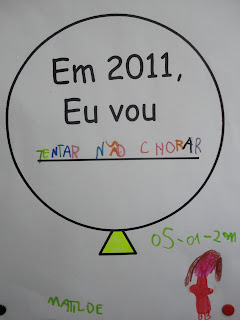 Em 2011,
Eu vou
TENTAR NÃO CHORAR
05-01-2011
MATILDE